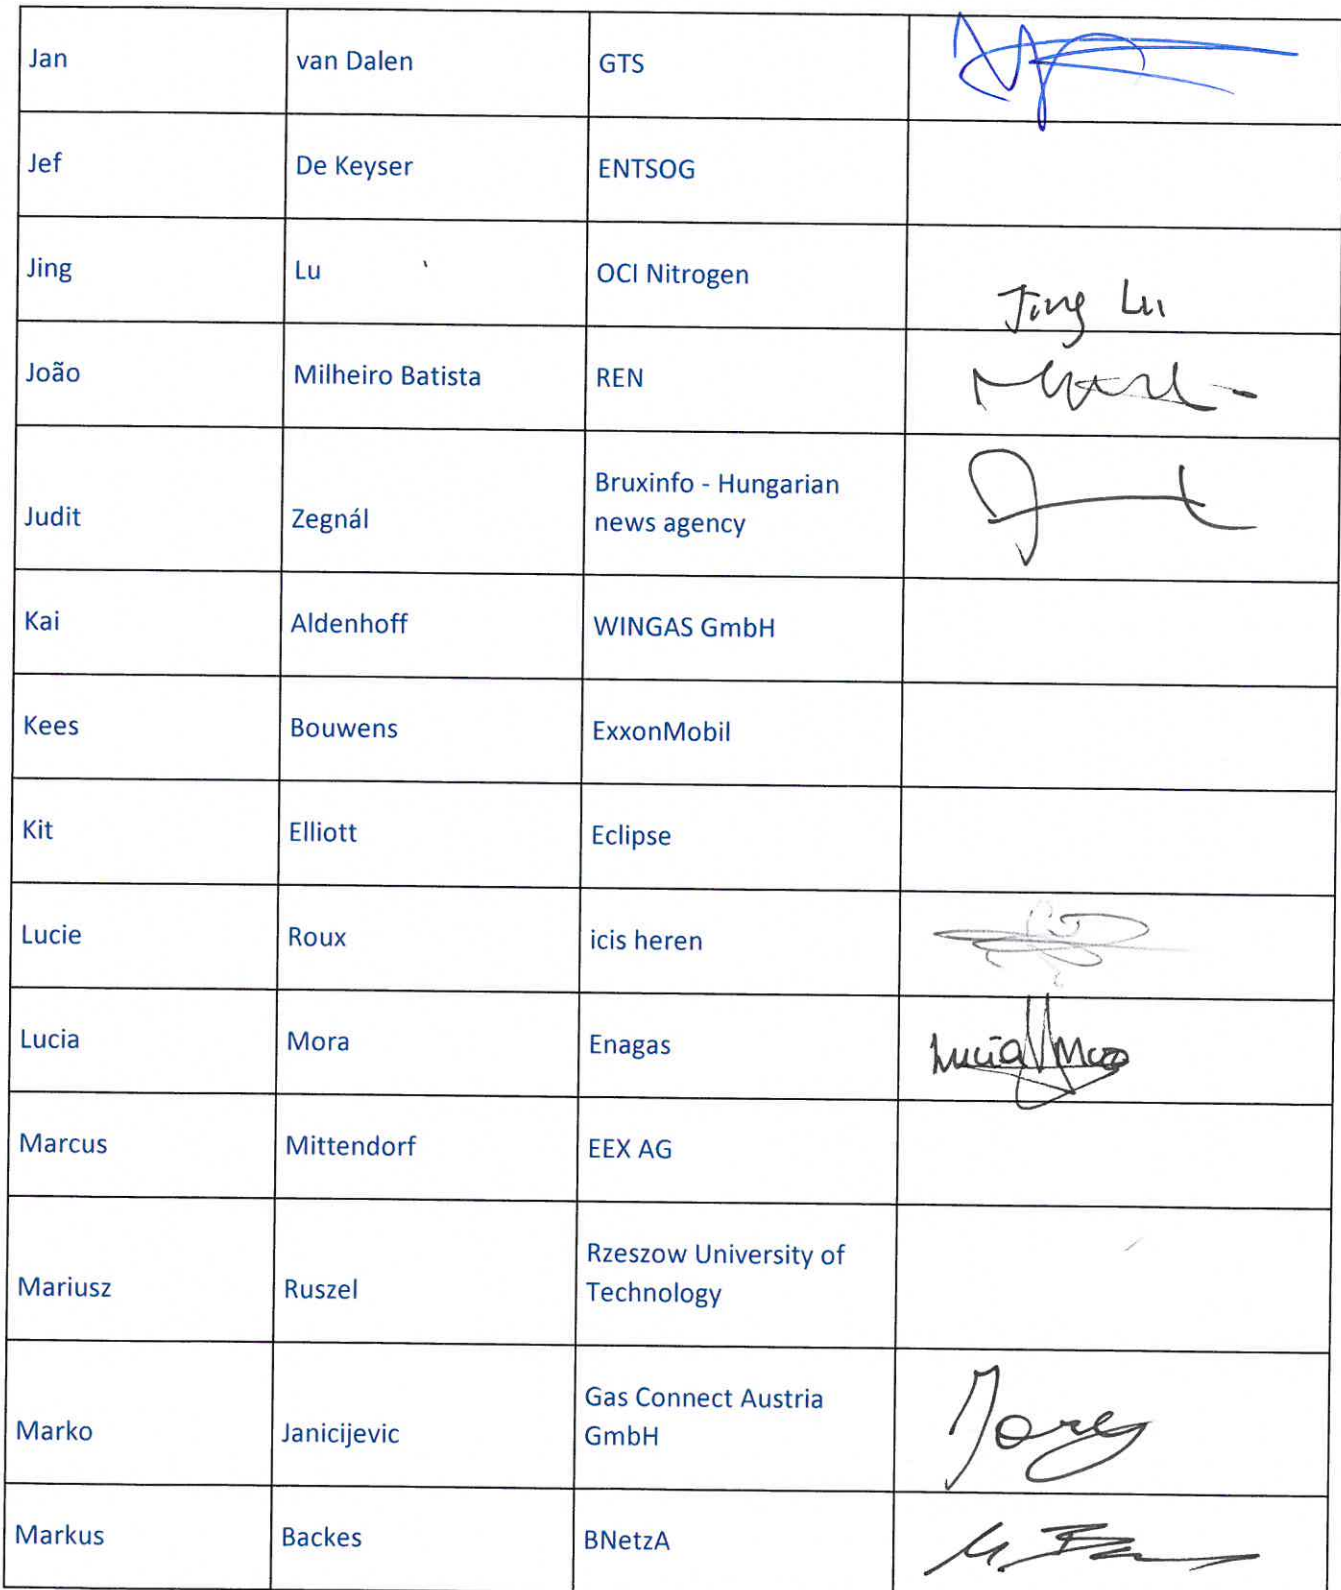 Jan van Dalen GTS
Jef De Keyser ENTSOG
Jing Lu OCI Nitrogen
Jing Lu
João Milheiro Batista REN
Judit Zegnál Bruxinfo - Hungarian
news agency
Kai Aldenhoff WINGAS GmbH
Kees Bouwens ExxonMobil
Kit Elliott Eclipse
Lucie Roux icis heren
Lucia Mora Enagas
Lucía Mora
Marcus Mittendorf EEX AG
Mariusz Ruszel Rzeszow University of
Technology
Marko Janicijevic Gas Connect Austria
GmbH
Markus Backes BNetzA